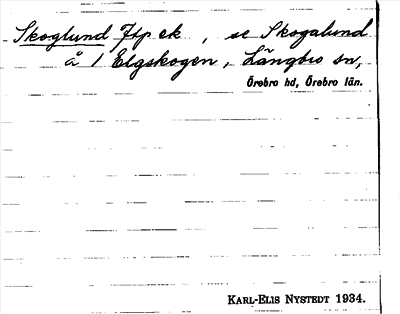 Skoglund Jfp ek , se Skogalund
å 1 Elgskogen, Längbro sn,
Örebro hd, Örebro län.
KARL-ELIS NYSTEDT 1934.